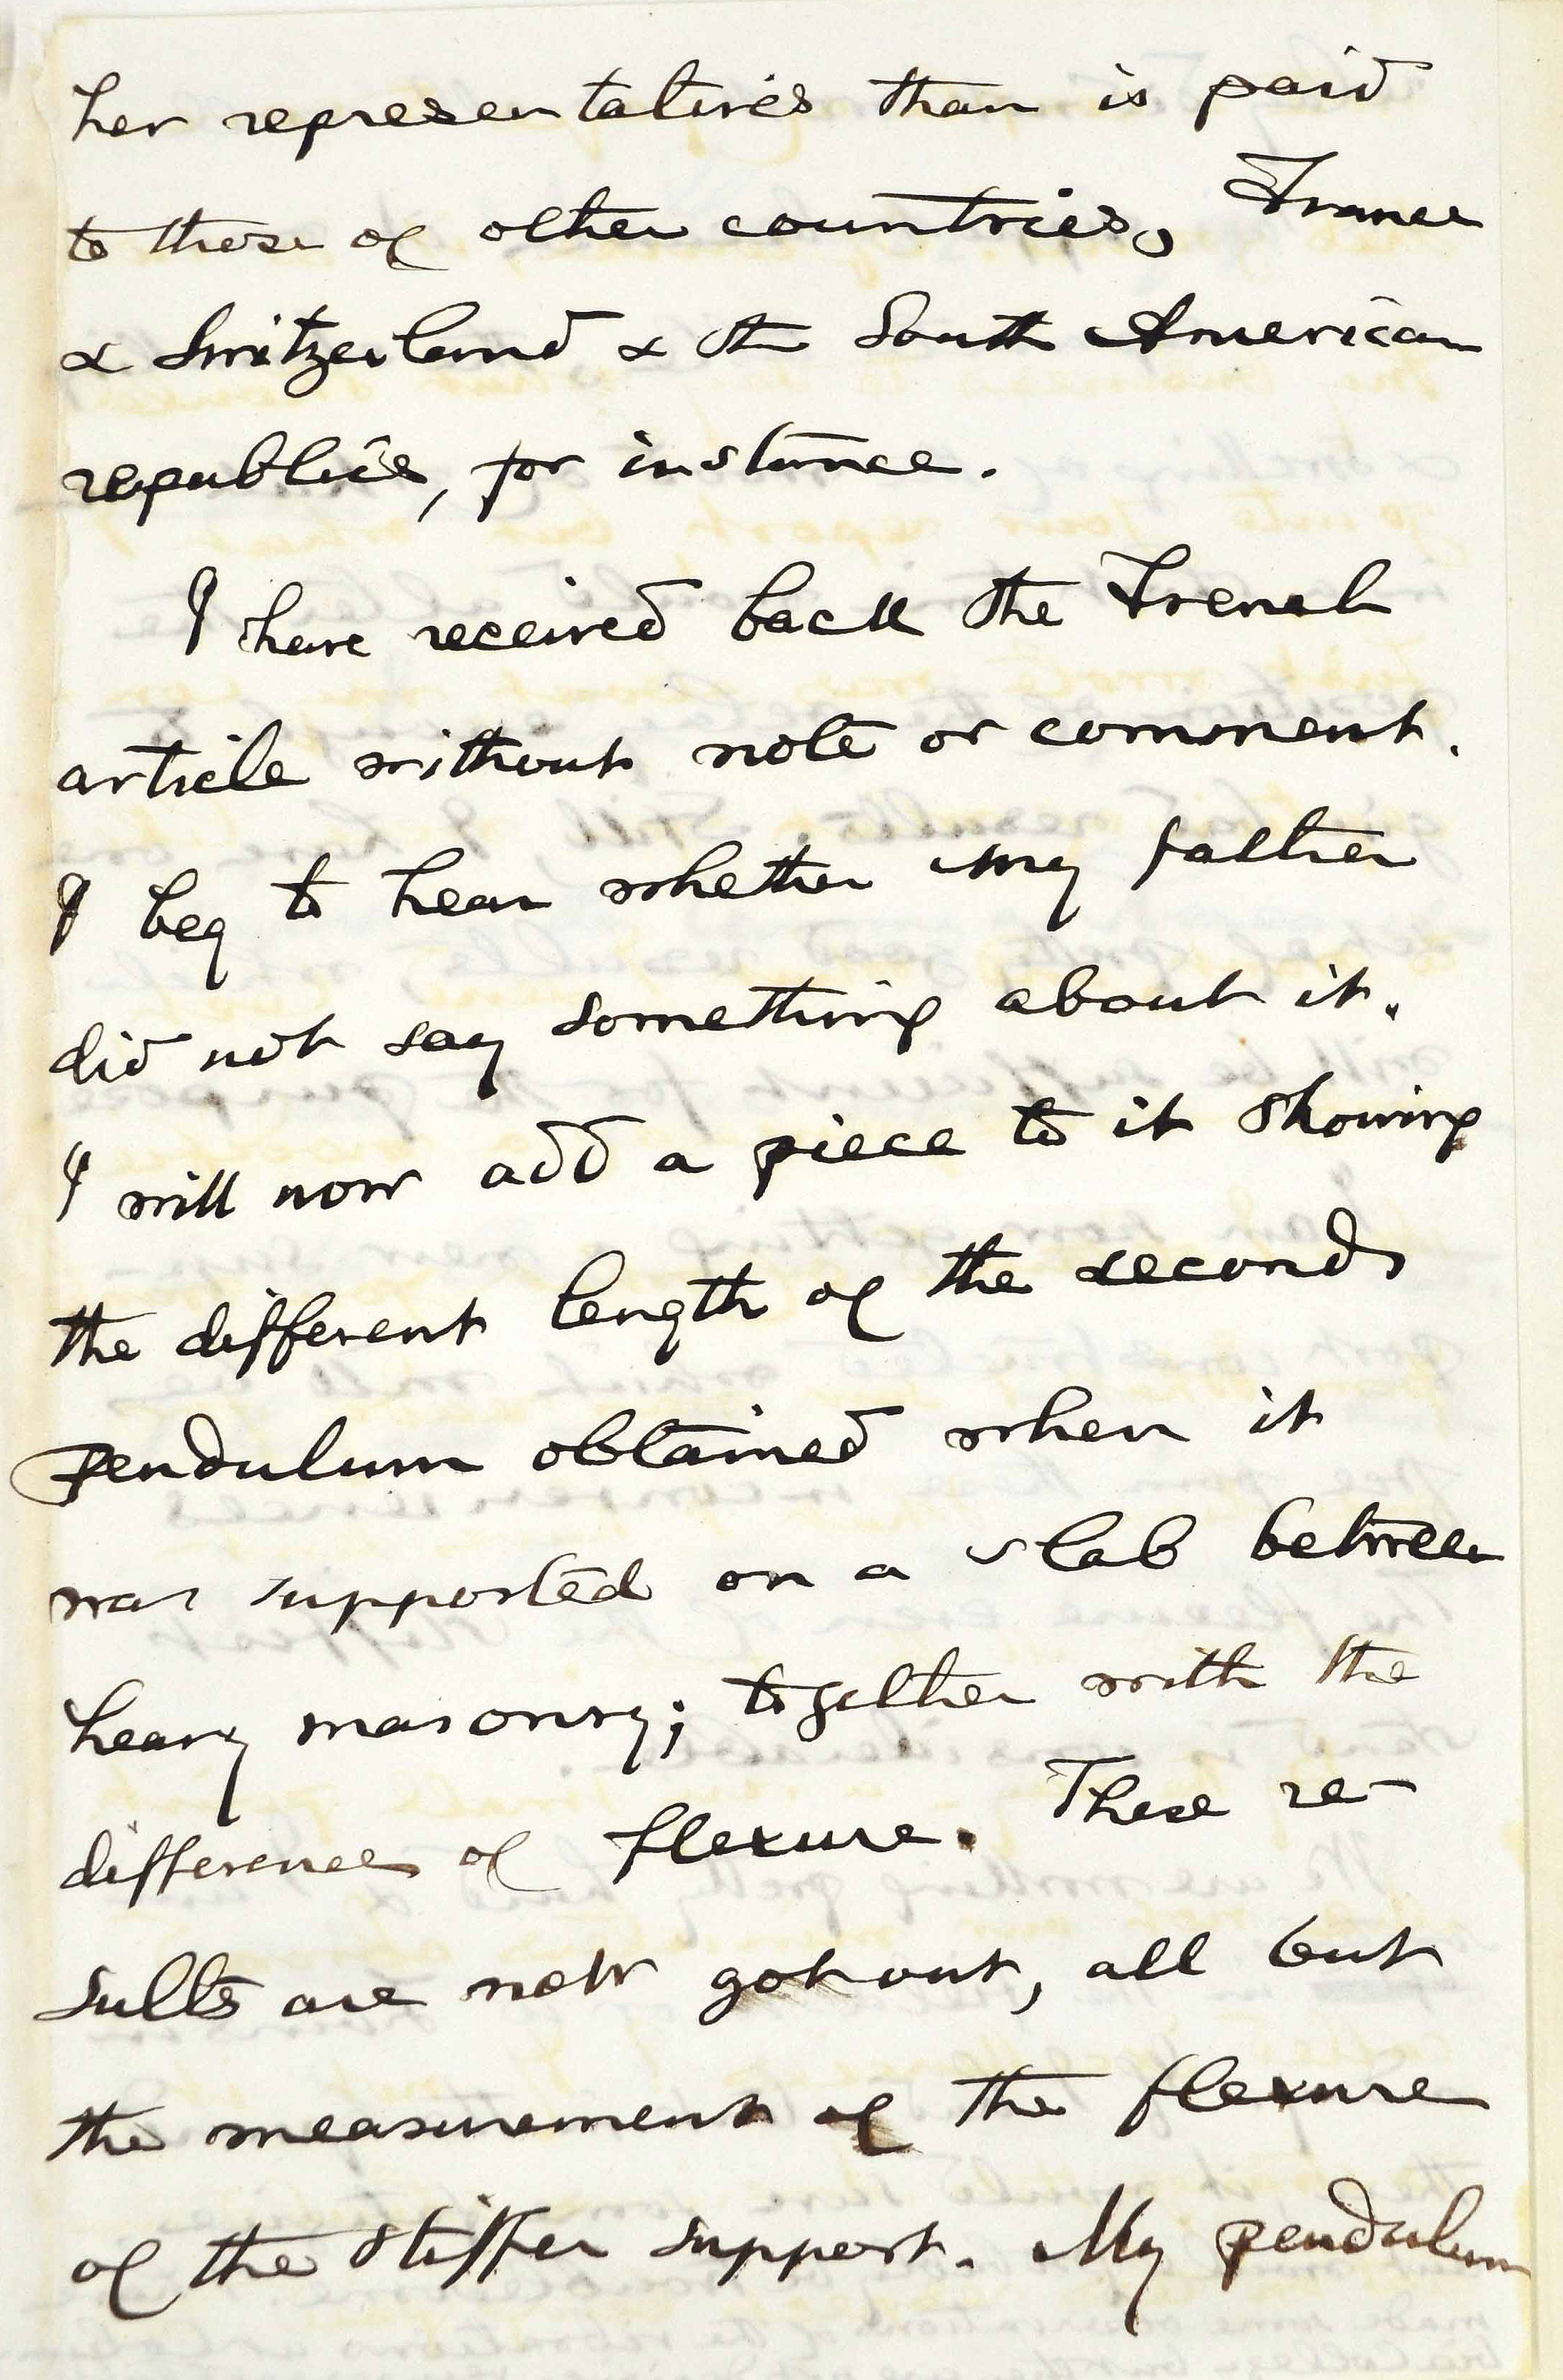 her representatives than is paid
to those of other countries, France
& Switzerland & the South American
republics, for instance.
I have received back the French
article without note or comment.
I beg to hear whether my father
did not say something about it.
I will now add a piece to it showing
the different length of the seconds
pendulum obtained when it
was supported on a slab between
heavy masonry; together with the
difference of flexure. These re-
sults are now got out, all but
the measurement of the flexure
of the stiffer support. My pendulum